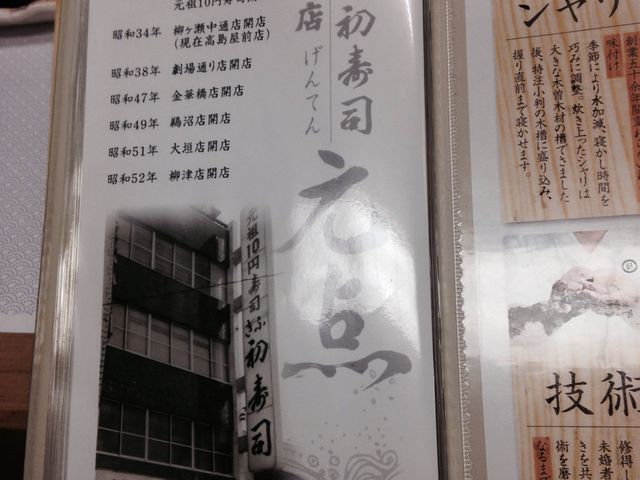 シャリ
創業五十余年
味付け。
季節により水加減、寝かし時間を
巧みに調整。炊き上ったシャリは
大きな木曽木材の槽でさました
後、特注小判の木槽に盛り込み、
握り直前まで寝かせます。
技術
修得し
未婚者
きを共
術を磨
なるま
初寿司
店
げんてん
元点
元祖10円寿司開
昭和34年 柳ヶ瀬中通店開店
(現在高島屋前店)
昭和38年 劇場通り店開店
昭和47年 金華橋店開店
昭和49年 鵜沼店開店
昭和51年 大垣店開店
昭和52年 柳津店開店
元祖10円寿司
ぎふ初寿司